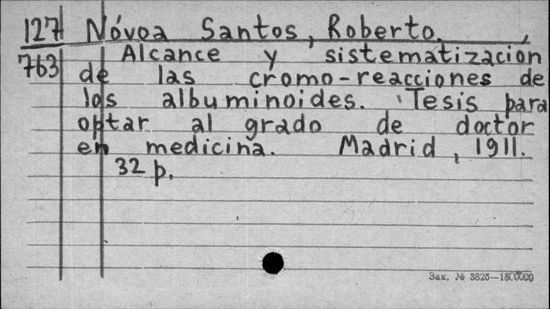 127 Nóvoa Santos, Roberto.,
763 Alcance y sistematizacion
de las cromo-reacciones de
los albuminoides. Tesis para
optar al grado de doctor
en medicina. Madrid, 1911.
32 p.
Зак. № 3825—15.000